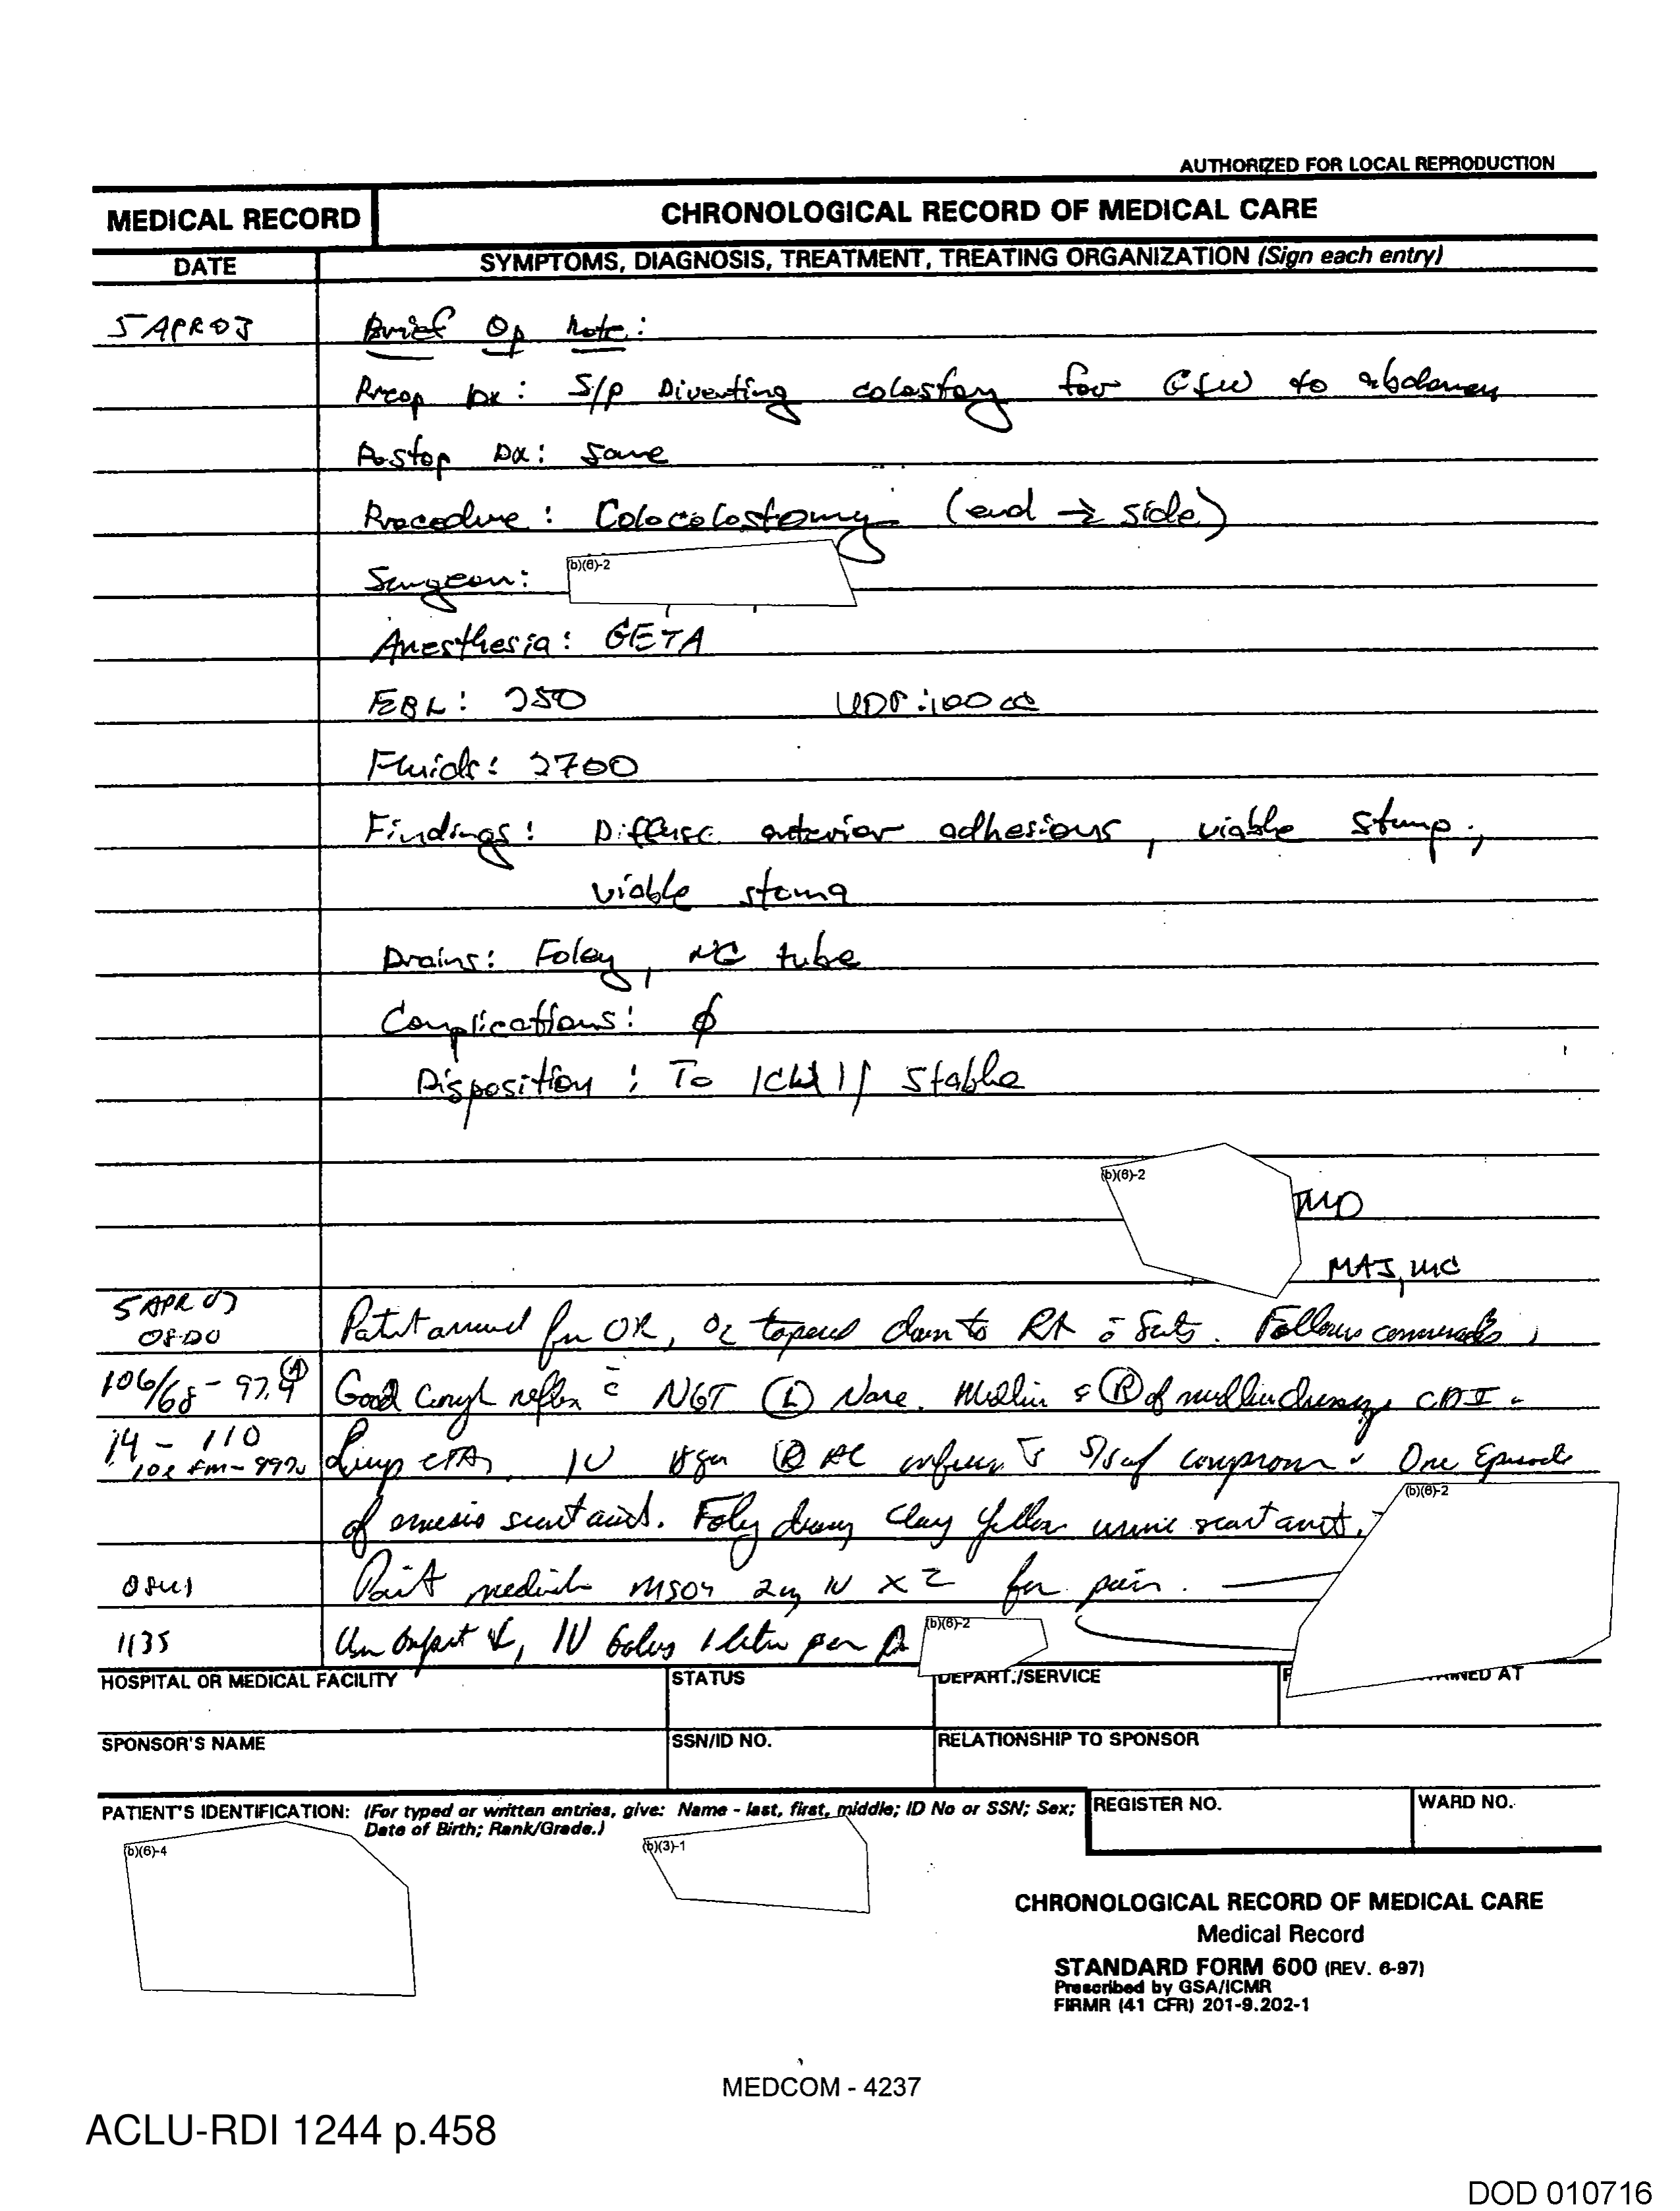 AUTHORIZED FOR LOCAL REPRODUCTION
MEDICAL RECORD
CHRONOLOGICAL RECORD OF MEDICAL CARE
DATE
SYMPTOMS, DIAGNOSIS, TREATMENT, TREATING ORGANIZATION (Sign each entry)
5 APR 03 Brief Op Note:
Preop Dx: S/P Diverting colostomy for GSW to abdomen
Postop Dx: Same
Procedure: Colocolostomy (end → side)
(b)(6)-2
Surgeon:
Anesthesia: GETA
EBL: 250 UOP: 100 cc
Fluids: 2700
Findings: Diffuse anterior adhesions, viable stump;
viable stoma
Drains: Foley, NG tube
Complications: ϕ
Disposition: To ICW 1/ Stable
(b)(6)-2
MD
MAJ, MC
5 APR 03
0800 arrived OR, O2 tapered down to RA Sats. Follows commands,
106/68 - 97.4 (A) Good cough reflex c̄ NGT (L) Nare. Midline & (R) of midline dressings CDI.
14 - 110
99% Lungs CTA, IV 18ga (R) AC One Episode
(b)(6)-2
of emesis scant amt. Foley yellow urine scant amt.
MSO4 2mg IV x 2 for pain.
1135 IV bolus 1 liter per
(b)(6)-2
HOSPITAL OR MEDICAL FACILITY
STATUS
DEPART./SERVICE
AT
SPONSOR'S NAME
SSN/ID NO.
RELATIONSHIP TO SPONSOR
PATIENT'S IDENTIFICATION: (For typed or written entries, give: Name - last, first, middle; ID No or SSN; Sex;
Date of Birth; Rank/Grade.)
REGISTER NO.
WARD NO.
(b)(6)-4
(b)(3)-1
CHRONOLOGICAL RECORD OF MEDICAL CARE
Medical Record
STANDARD FORM 600 (REV. 6-97)
Prescribed by GSA/ICMR
FIRMR (41 CFR) 201-9.202-1
MEDCOM - 4237
ACLU-RDI 1244 p.458
DOD 010716